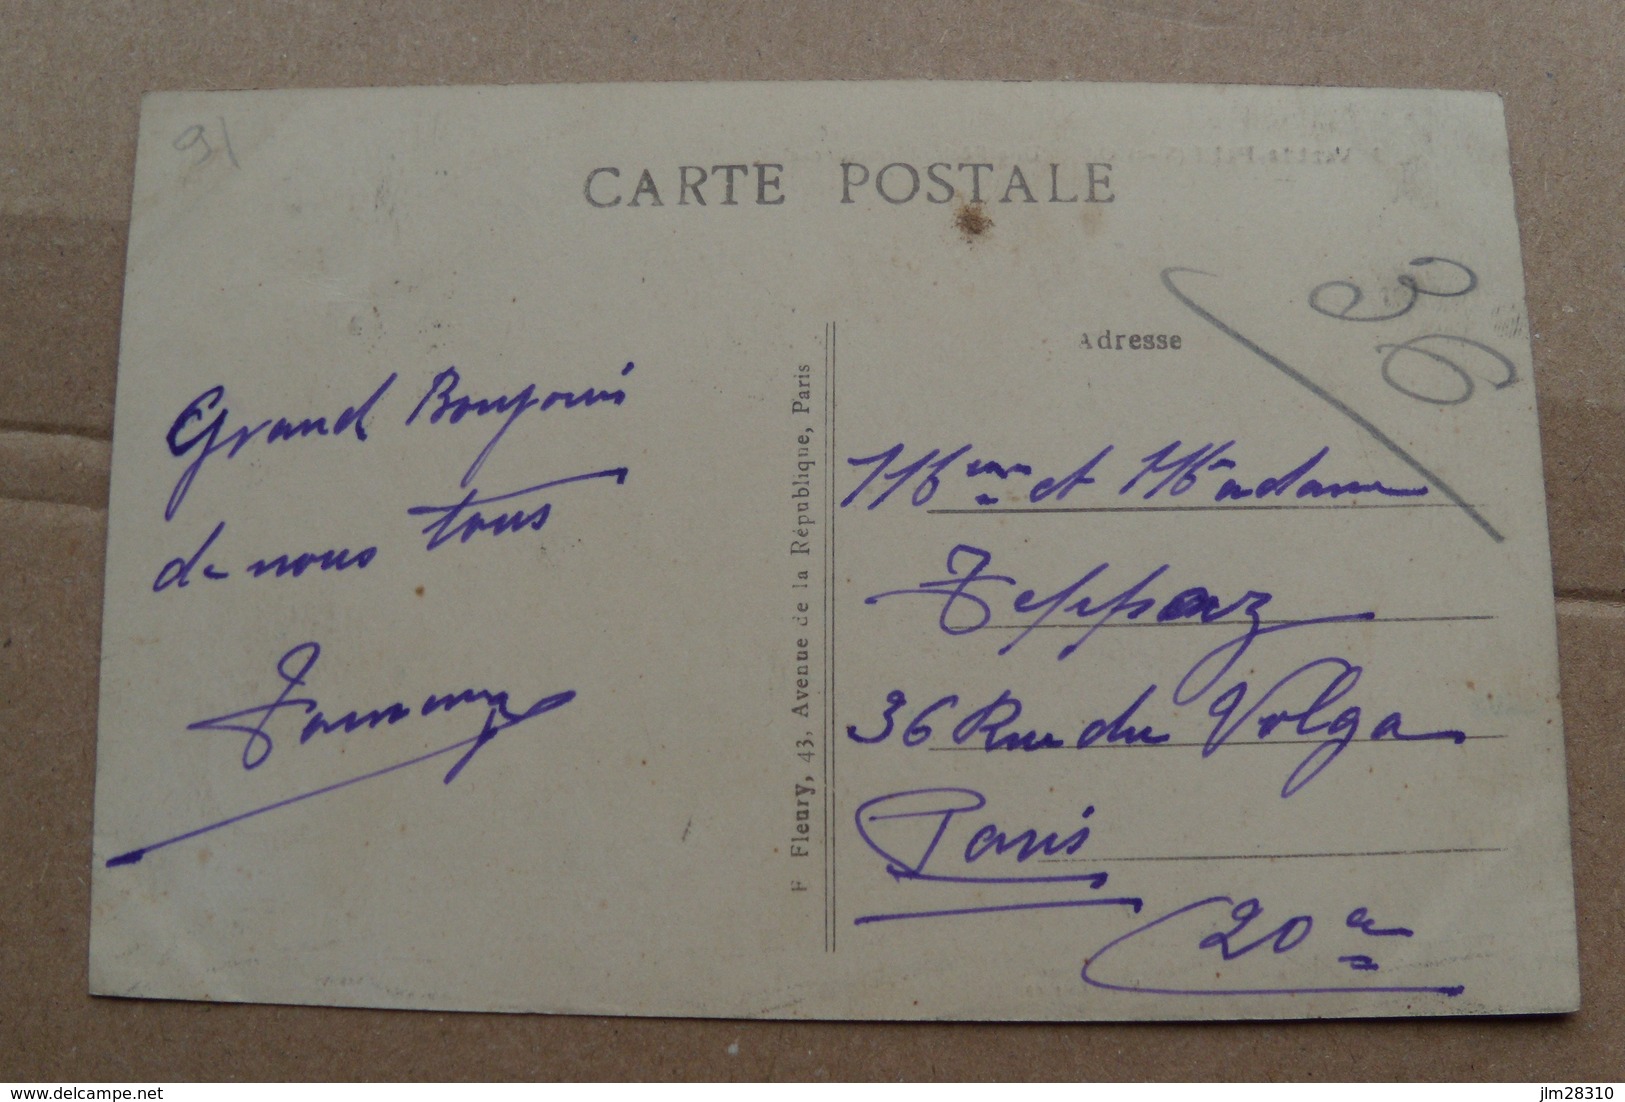 91
CARTE POSTALE
Adresse
Grand Bonjour
de nous tous
F Fleury, 43, Avenue de la République, Paris
et Madame
Teppaz
36 Rue du Volga
Paris
20e
jlm28310